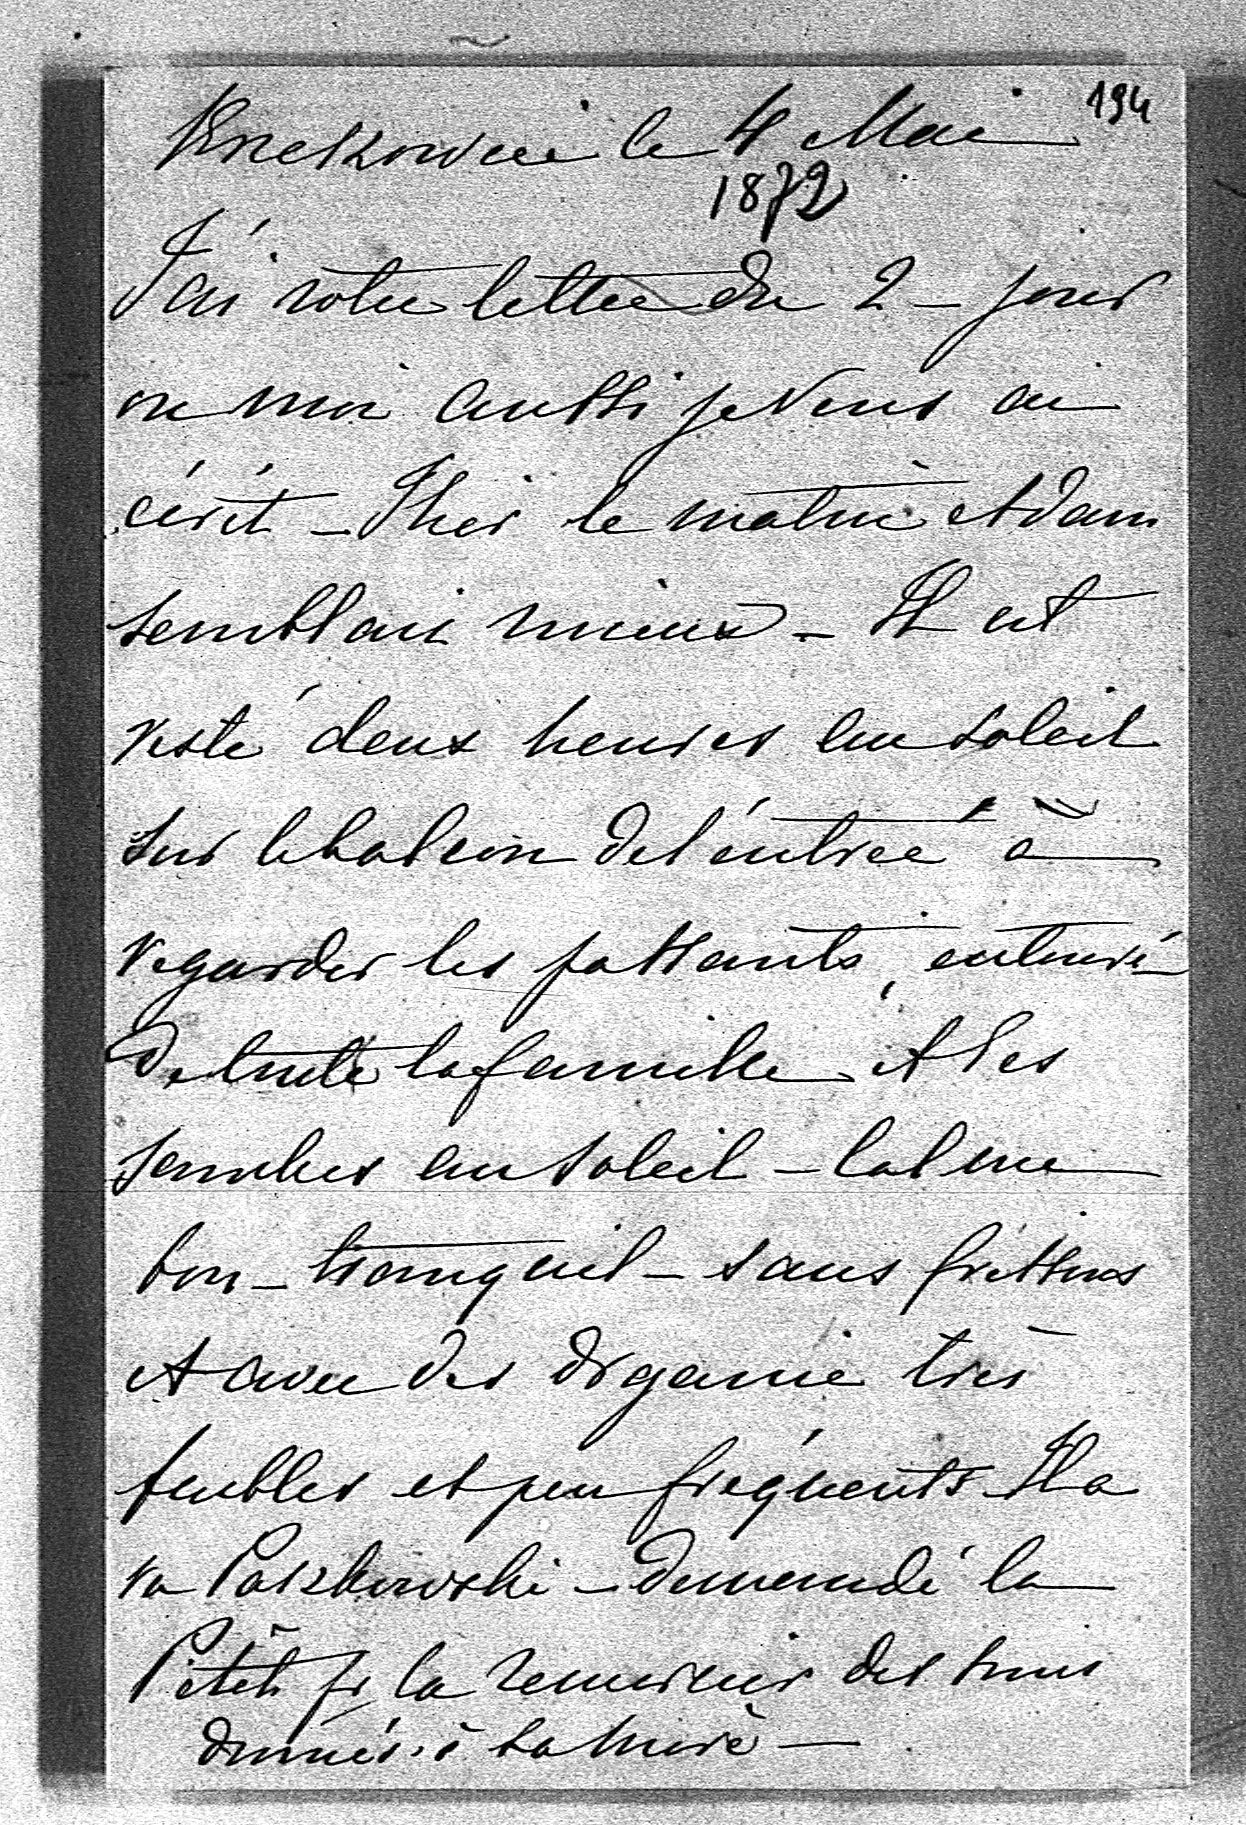 194
Krzeszowice le 4 Mai
1872
J'ai votre lettre du 2 – jour
ou moi aussi je vous ai
écrit – Hier le matin Adam
semblait mieux – Il est
resté deux heures au soleil
sur le balcon de l'entrée à
regarder les passants, entouré
de toute la famille et les
jambes au soleil – calme
bon – tranquil – sans frissons
et avec des
faibles et peu fréquents – Il a
vu Paszkowski – demandé la
Petete pr la remercier des soins
donnés à sa mère –